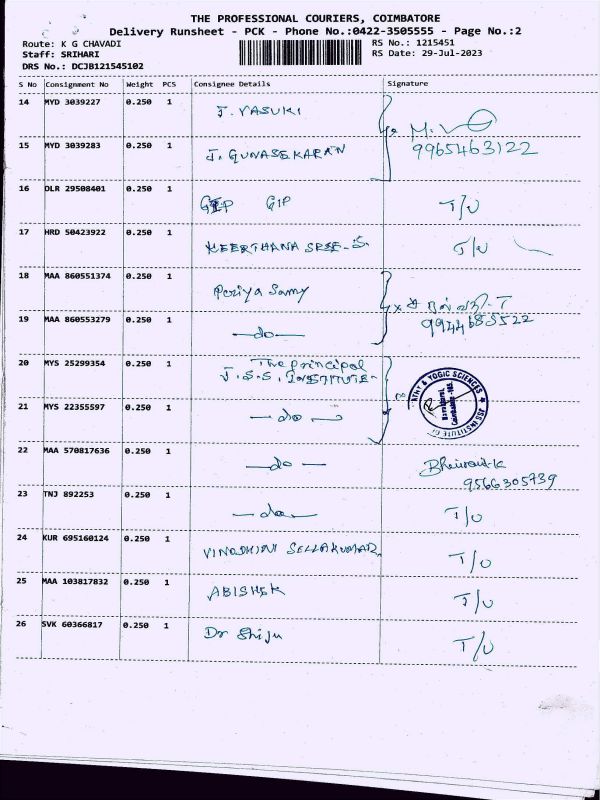 THE PROFESSIONAL COURIERS, COIMBATORE
Delivery Runsheet - PCK - Phone No.:0422-3505555 - Page No.:2
Route: K G CHAVADI RS No.: 1215451
Staff: SRIHARI RS Date: 29-Jul-2023
DRS No.: DCJB121545102
S No Consignment No Weight PCS Consignee Details Signature
14 MYD 3039227 0.250 1 J. VASUKI
15 MYD 3039283 0.250 1 J. GUNASEKARAN 9965463122
16 DLR 29508401 0.250 1 GIP T/U
17 HRD 50423922 0.250 1 KEERTHANA T/U
18 MAA 860551374 0.250 1 Periya Samy
19 MAA 860553279 0.250 1 -do-
20 MYS 25299354 0.250 1 The principal
J.S.S. INSTITUTE-
21 MYS 22355597 0.250 1 -do-
22 MAA 570817636 0.250 1 -do-
9566305739
23 TNJ 892253 0.250 1 -do- T/U
24 KUR 695160124 0.250 1 VINODHINI SELLAKUMAR T/U
25 MAA 103817832 0.250 1 ABISHEK T/U
26 SVK 60366817 0.250 1 Dr Shiju T/U